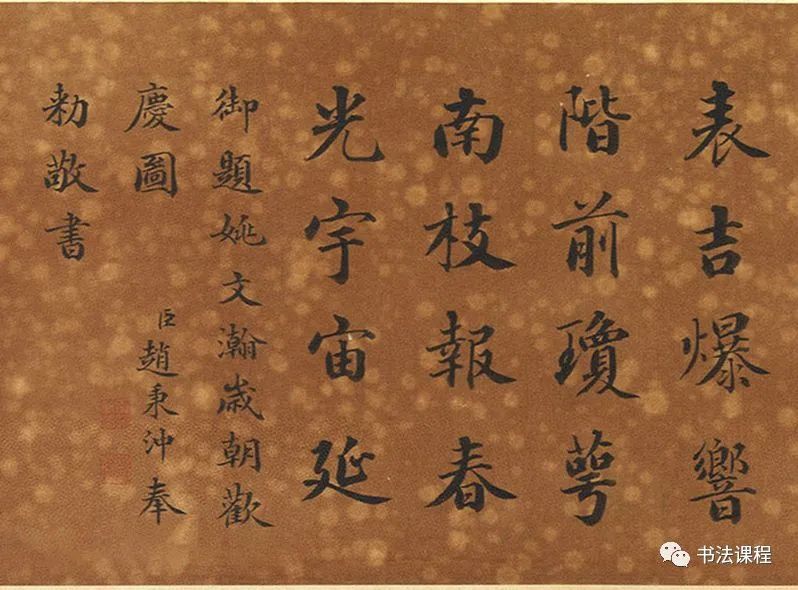 表吉爆響
階前瓊萼
南枝報春
光宇宙延
御題姚文瀚歲朝歡
慶圖
臣趙秉沖奉
勅敬書
书法课程